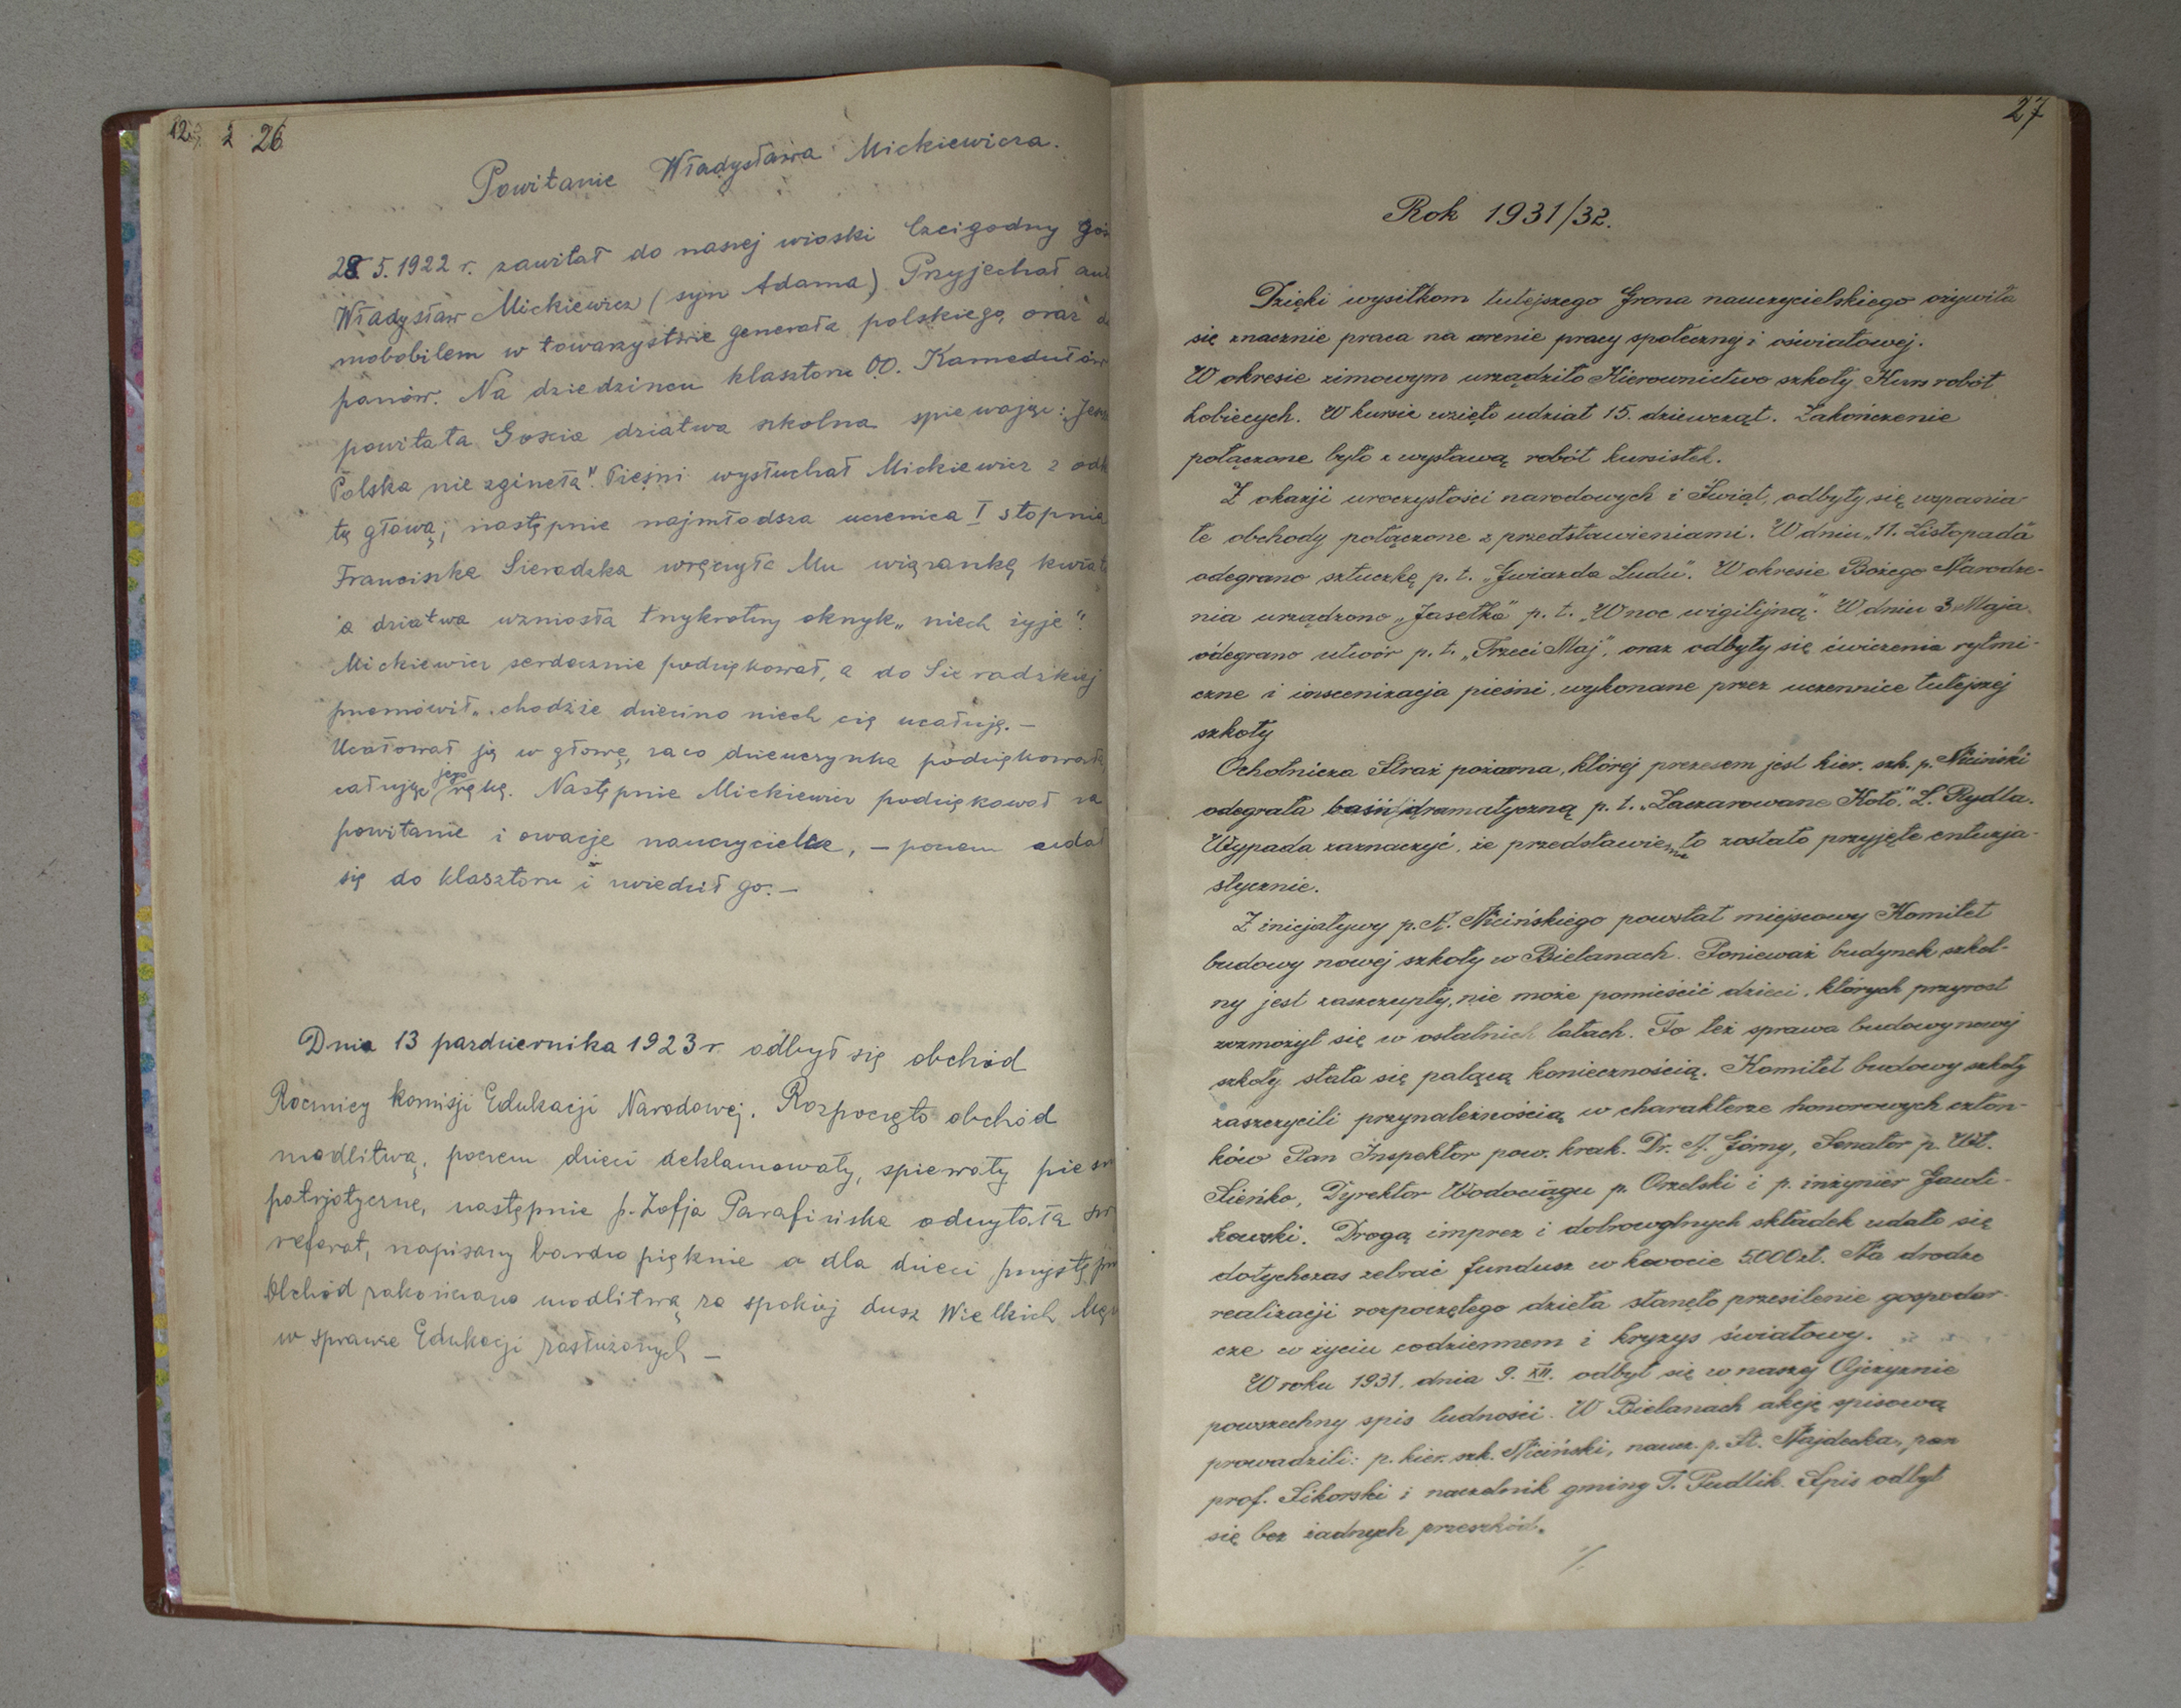 12. 2 26
Powitanie Władysława Mickiewicza.
28. 5. 1922 r. zawitał do naszej wioski Czcigodny Goś
Władysław Mickiewicz (syn Adama). Przyjechał au
mobobilem w towarzystwie generała polskiego, oraz
panów. Na dziedzińcu klasztoru OO. Kamedułów
powitała Gościa dziatwa szkolna śpiewając: „Jeszcze
Polska nie zginęła". Pieśni wysłuchał Mickiewicz z odk
tą głową; następnie najmłodsza uczenica I stopnia
Franciszka Sieradzka wręczyła Mu wiązankę kwiat
a dziatwa wzniosła trzykrotny okrzyk „niech żyje".
Mickiewicz serdecznie podziękował, a do Sieradzkiej
przemówił „chodźże dziecino niech cię ucałuję. –
Ucałował ją w głowę, zaco dziewczynka podziękowała,
całując jego rękę. Następnie Mickiewicz podziękował za
powitanie i owacje nauczycielce, – poczem udał
się do klasztoru i zwiedził go. –
Dnia 13 pazdziernika 1923 r. odbył się obchód
Rocznicy Komisji Edukacji Narodowej. Rozpoczęto obchód
modlitwą, poczem dzieci deklamowały, spiewały pies
patrjotyczne, następnie p. Zofja Parafińska odczytała
referat, napisany bardzo pięknie a dla dzieci przystęp
Obchód zakończono modlitwą za spokój dusz Wielkich Męż
w sprawie Edukacji zasłużonych –
27
Rok 1931/32.
Dzięki wysiłkom tutejszego Grona nauczycielskiego ożywiła
się znacznie praca na arenie pracy społecznej i oświatowej.
W okresie zimowym urządziło Kierownictwo szkoły Kurs robót
kobiecych. W kursie wzięło udział 15. dziewcząt. Zakończenie
połączone było z wystawą robót kursistek.
Z okazji uroczystości narodowych i Świąt, odbyły się wspania-
łe obchody połączone z przedstawieniami. W dniu „11. Listopada"
odegrano sztuczkę p. t. „Gwiazda Ludu". W okresie Bożego Narodze-
nia urządzono „Jasełka" p. t. „W noc wigilijną". W dniu 3 Maja
odegrano utwór p. t. „Trzeci Maj", oraz odbyły się ćwiczenia rytmi-
czne i inscenizacja pieśni, wykonane przez uczennice tutejszej
szkoły
Ochotnicza Straż pożarna, której prezesem jest kier. szk. p. Niciński
odegrała baśń dramatyczną p. t. „Zaczarowane Koło". L. Rydla.
Wypada zaznaczyć, że przedstawienie to zostało przyjęte entuzja-
stycznie.
Z inicjatywy p. A. Nicińskiego powstał miejscowy Komitet
budowy nowej szkoły w Bielanach. Ponieważ budynek szkol-
ny jest zaszczupły, nie może pomieścić dzieci, których przyrost
rozmożył się w ostatnich latach. To też sprawa budowy nowej
szkoły stała się palącą koniecznością. Komitet budowy szkoły
zaszczycili przynależnością w charakterze honorowych człon-
ków Pan Inspektor pow. krak. Dr. A. Górny, Senator p. Wł.
Sieńko, Dyrektor Wodociągu p. Orzelski i p. inżynier Gawli-
kowski. Drogą imprez i dobrowolnych składek udało się
dotychczas zebrać fundusz w kwocie 5.000 zł. Na drodze
realizacji rozpoczętego dzieła stanęło przesilenie gospodar-
cze w życiu codziennem i kryzys światowy.
W roku 1931. dnia 9. XII. odbył się w naszej Ojczyznie
powszechny spis ludności. W Bielanach akcję spisową
prowadzili: p. kier. szk. Niciński, naucz. p. St. Majdecka, pan
prof. Sikorski i naczelnik gminy T. Pudlik. Spis odbył
się bez żadnych przeszkód.